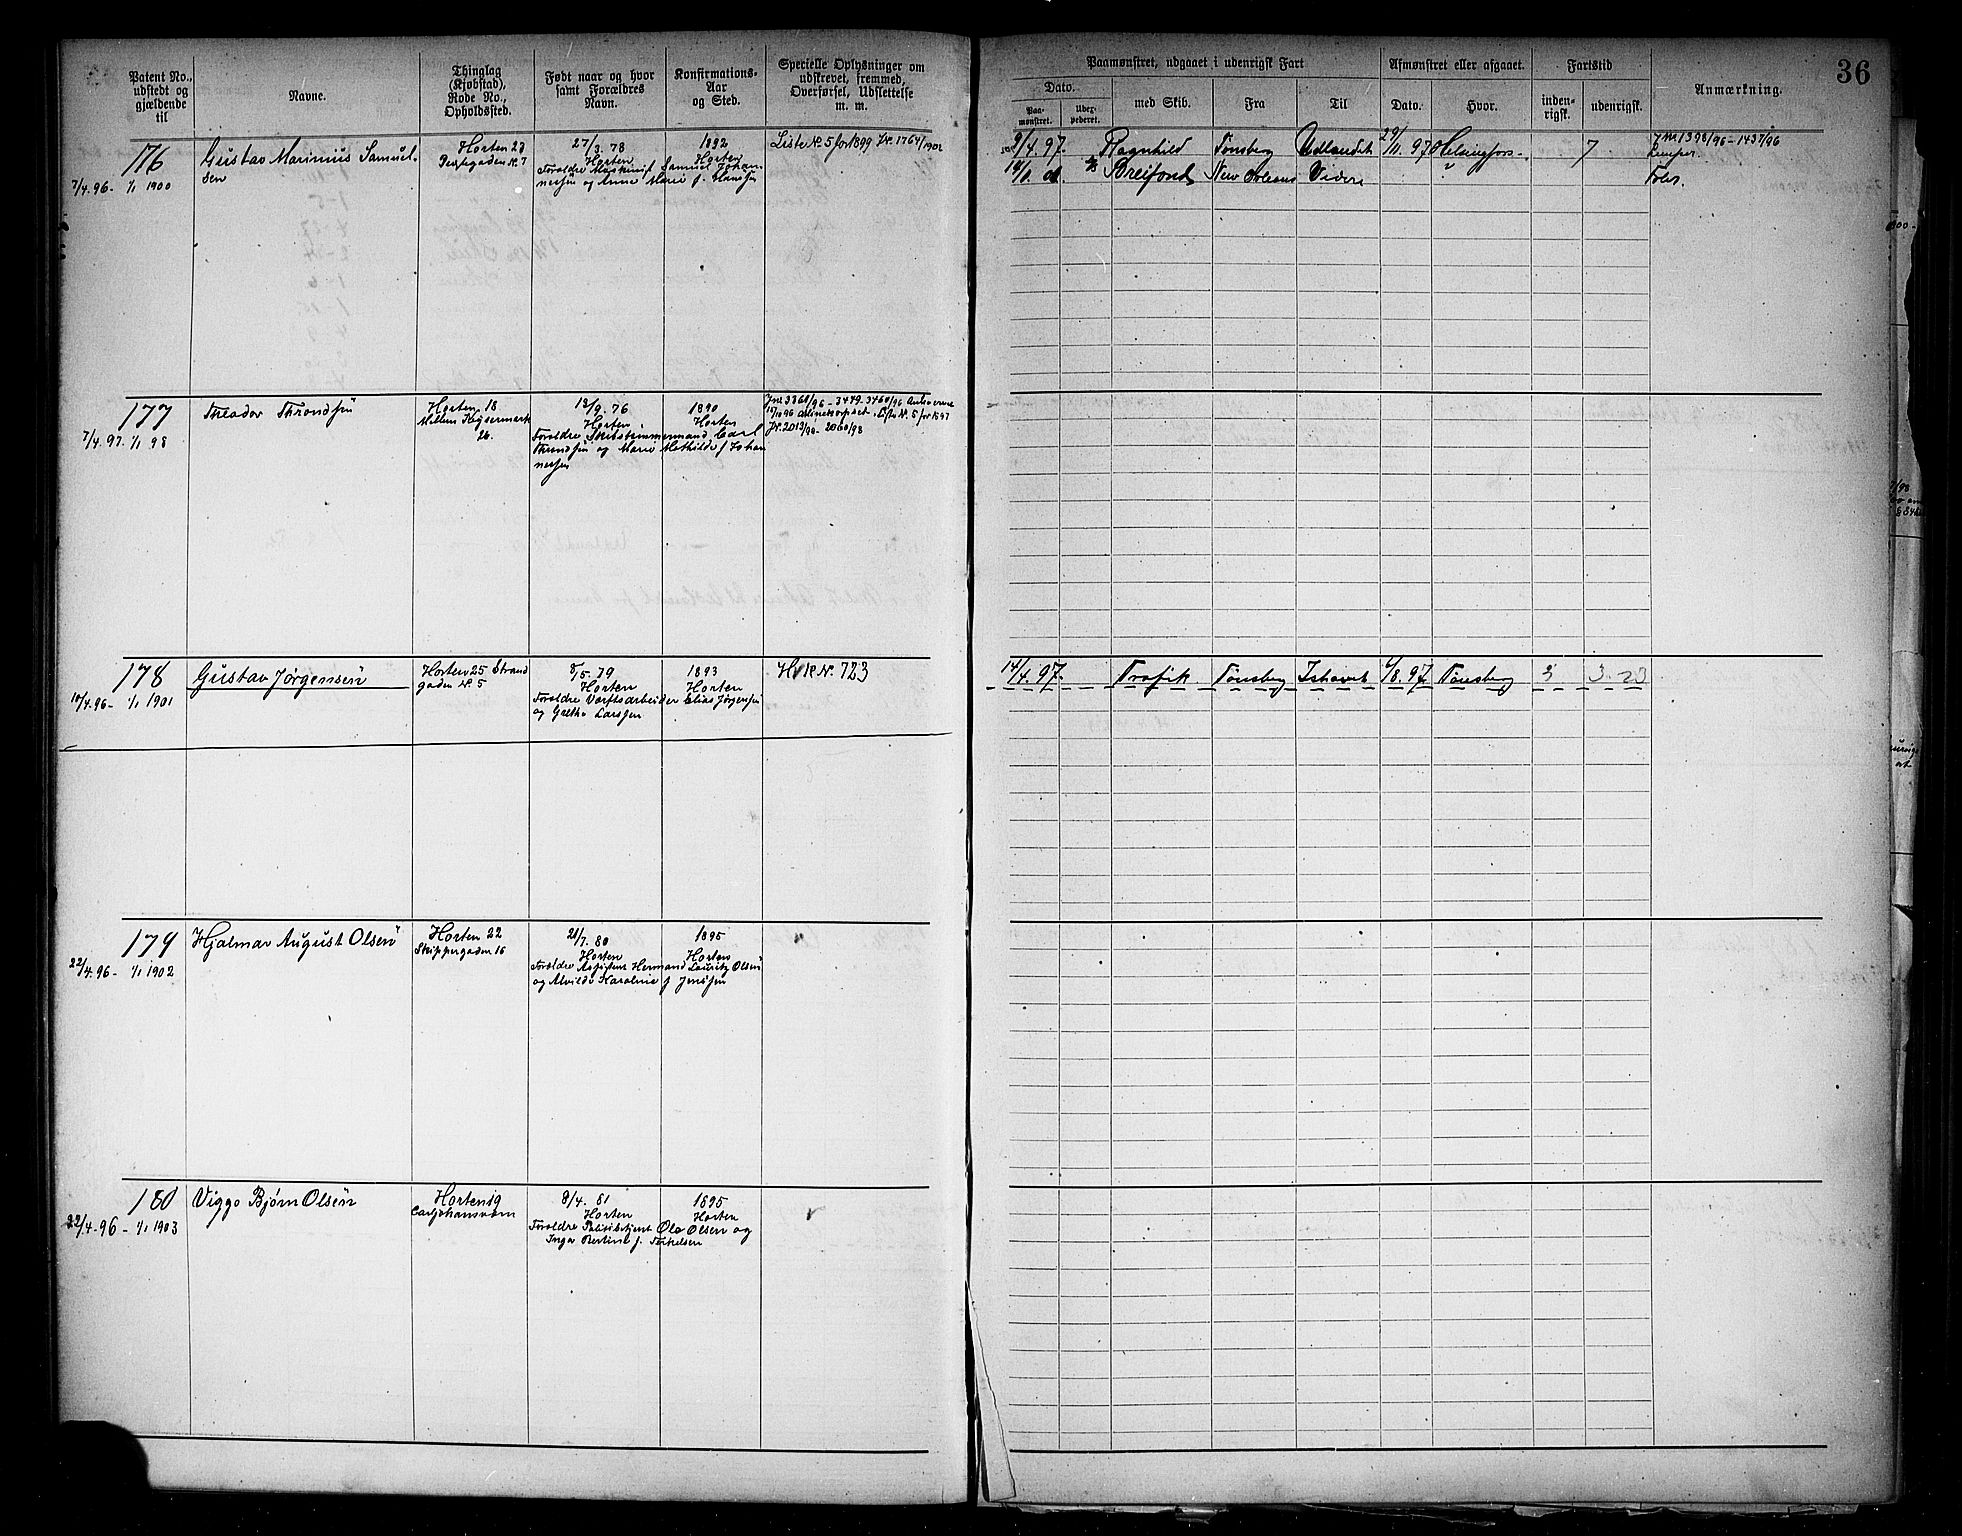 Patent No.,
udstedt og
gjældende
til
Navne.
Thinglag
(Kjøbstad),
Rode No.,
Opholdssted.
Født naar og hvor
samt Forældres
Navn.
Konfirmations-
Aar
og Sted.
Specielle Oplysninger om
udskrevet, fremmed,
Overførsel, Udslettelse
m. m.
Paamønstret, udgaaet i udenrigsk Fart
Dato.
Paa-
mønstret.
med Skib.
Fra
Til
Afmønstret eller afgaaet.
Dato.
Hvor.
Fartstid
inden-
rigsk.
udenrigsk.
Anmærkning.
36
176
7/4.96- 1/1 1900
Gustav Marinius Samuel-
sen
Horten 23
27/3.78
Horten
Forældre Maskinist Samuel Johan-
nessen og Anne Marie f. Hansen
1892
Horten
Liste N. 5 for 1899 J.N. 1764/1901
9/4.97.
Ragnhild
Tønsberg
Udlandet
29/11.97
Helsingfors
7
Jnr 1398/96-1437/96
Breifond
New Orleans
Videre
177
7/4.97. 1/1 98
Theodor Throndsen
Horten 18
Mellem Keysermark
26.
13/9.76
Horten
Forældre Skibstømmermand Carl
Throndsen og Marie Mathilde f Johan
nessen
1890
Horten
Jnr 3360/96 - 3449-3460/96
Liste N. 5 for 1897
J.N. 2013/98- 2060/98
178
10/4.96- 1/1 1901
Gustav Jørgensen
Horten 25 Strand
gaden N. 5
8/5.79
Horten
Forældre Værftsarbeider Elias Jørgensen
og Grethe Larssen
1893
Horten
H.R.N. 723
14/4.97.
Trafik
Tønsberg
Ishavet
Tønsberg
3
3.23
179
22/4.96- 1/1 1902
Hjalmar August Olsen
Horten 22
Skippergaden 16
21/7.80
Horten
Forældre Assistent Hermand Lauritz Olsen
og Alvilde Karoline f Jenssen
1895
Horten
180
22/4.96 - 1/1 1903
Viggo Bjørn Olsen
Horten 19
Carljohansværn
8/4.81
Horten
Forældre Politibetjent Ole Olsen og
Inga Bertine f. Terkelsen
1895
Horten